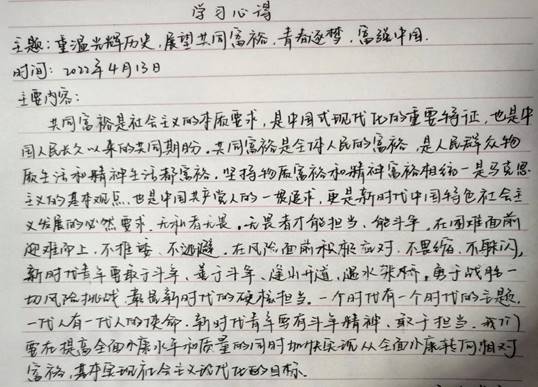 学习心得
主题：重温光辉历史，展望共同富裕，青春逐梦，富强中国.
时间：2022年4月13日
主要内容：
共同富裕是社会主义的本质要求，是中国式现代化的重要特征，也是中
国人民长久以来的共同期盼。共同富裕是全体人民的富裕，是人民群众物
质生活和精神生活都富裕。坚持物质富裕和精神富裕相统一是马克思
主义的基本观点，也是中国共产党人的一贯追求，更是新时代中国特色社会主
义发展的必然要求。无私者无畏，无畏者才能担当、能斗争，在困难面前
迎难而上，不推诿、不逃避，在风险面前积极应对、不畏缩、不躲闪，
新时代青年要敢于斗争、善于斗争、逢山开道、遇水架桥，勇于战胜一
切风险挑战，彰显新时代的硬核担当。一个时代有一个时代的主题，
一代人有一代人的使命。新时代青年要有斗争精神、敢于担当。我们
要在提高全面小康水平和质量的同时加快实现从全面小康转向相对
富裕，基本实现社会主义现代化的目标.